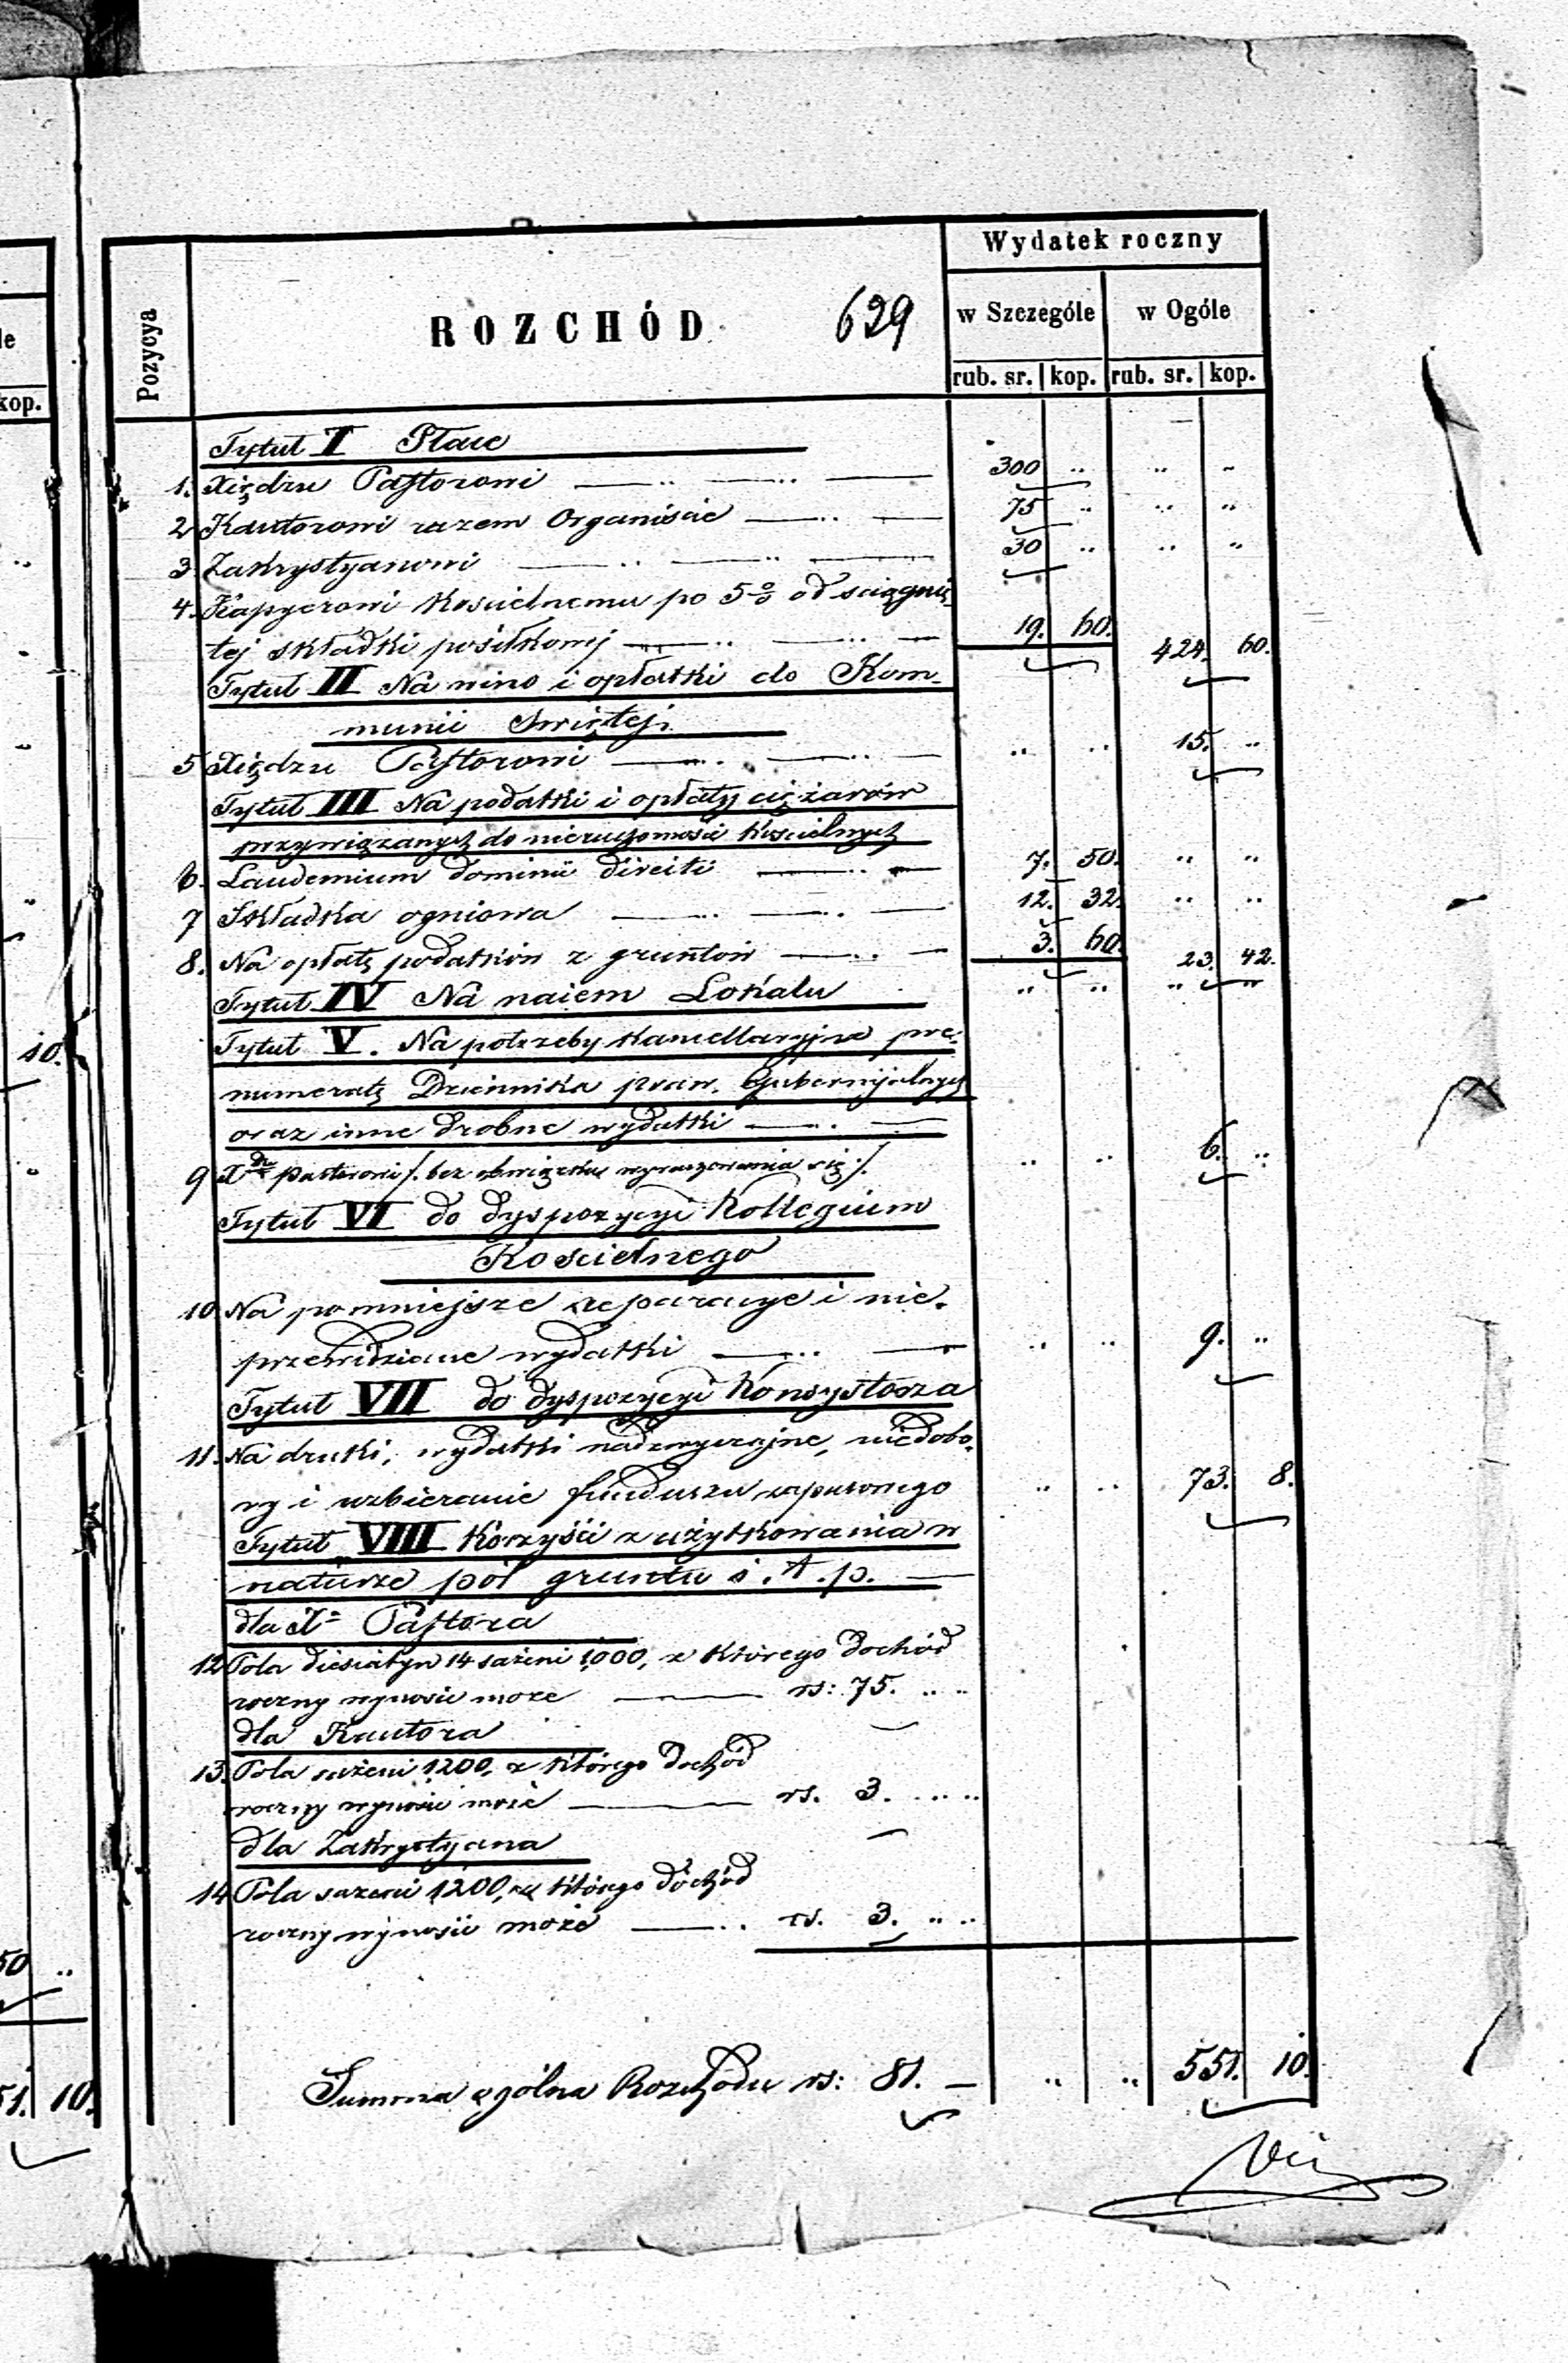 le
kop.
10.
50 ..
51. 10.
Pozycya
ROZCHÓD
629
Wydatek roczny
w Szczególe
w Ogóle
rub. sr. kop. rub. sr. kop.
Tytuł I Płace
1. Xiędzu Pastorowi 300 .. .. ..
2 Kantorowi razem Organiście 75 .. .. ..
3 Zakrystyanowi 30 .. .. ..
4. Kassyerowi Kościelnemu po 5% od ściągnię-
tej składki posiłkowej 19. 60. 424. 60.
Tytuł II Na wino i opłatki do Kom-
munii Świętej.
5 Xiędzu Pastorowi .. .. 15. ..
Tytuł III Na podatki i opłaty ciężarów
przywiązanych do nieruchomości Kościelnych
6. Laudemium dominii directi 7. 50. .. ..
7 Składka ogniowa 12. 32. .. ..
8. Na opłatę podatków z gruntów 3. 60. 23. 42.
Tytuł IV Na najem Lokalu .. .. .. ..
Tytuł V. Na potrzeby kancellaryjne pre-
numeratę Dziennika praw. Gubernijalnych
oraz inne drobne wydatki
9 Xdzu Pastorowi /. bez obowiązku wyrachowania się ./. .. .. 6. ..
Tytuł VI do dyspozycyi Kollegium
Kościelnego
10 Na pomniejsze reparacye i nie-
przewidziane wydatki .. .. 9. ..
Tytuł VII do dyspozycyi Konsystorza
11. Na druki, wydatki nadzwyczajne, niedobo-
ry i uzbieranie funduszu zapasowego .. .. 73. 8.
Tytuł VIII Korzyści z użytkowania w
naturze pól gruntu i. t. p.
dla X. Pastora
12 Pola diesiatyn 14 sażeni 1,000, z którego dochód
roczny wynosić może rs: 75. .. ..
dla Kantora
13. Pola sażeni 1200, z którego dochód
roczny wynosić może rs. 3. .. ..
dla Zakrystyana
14 Pola sażeni 1200, z którego dochód
roczny wynosić może rs. 3. .. ..
Summa ogólna Rozchodu rs: 81. — .. .. 551. 10.